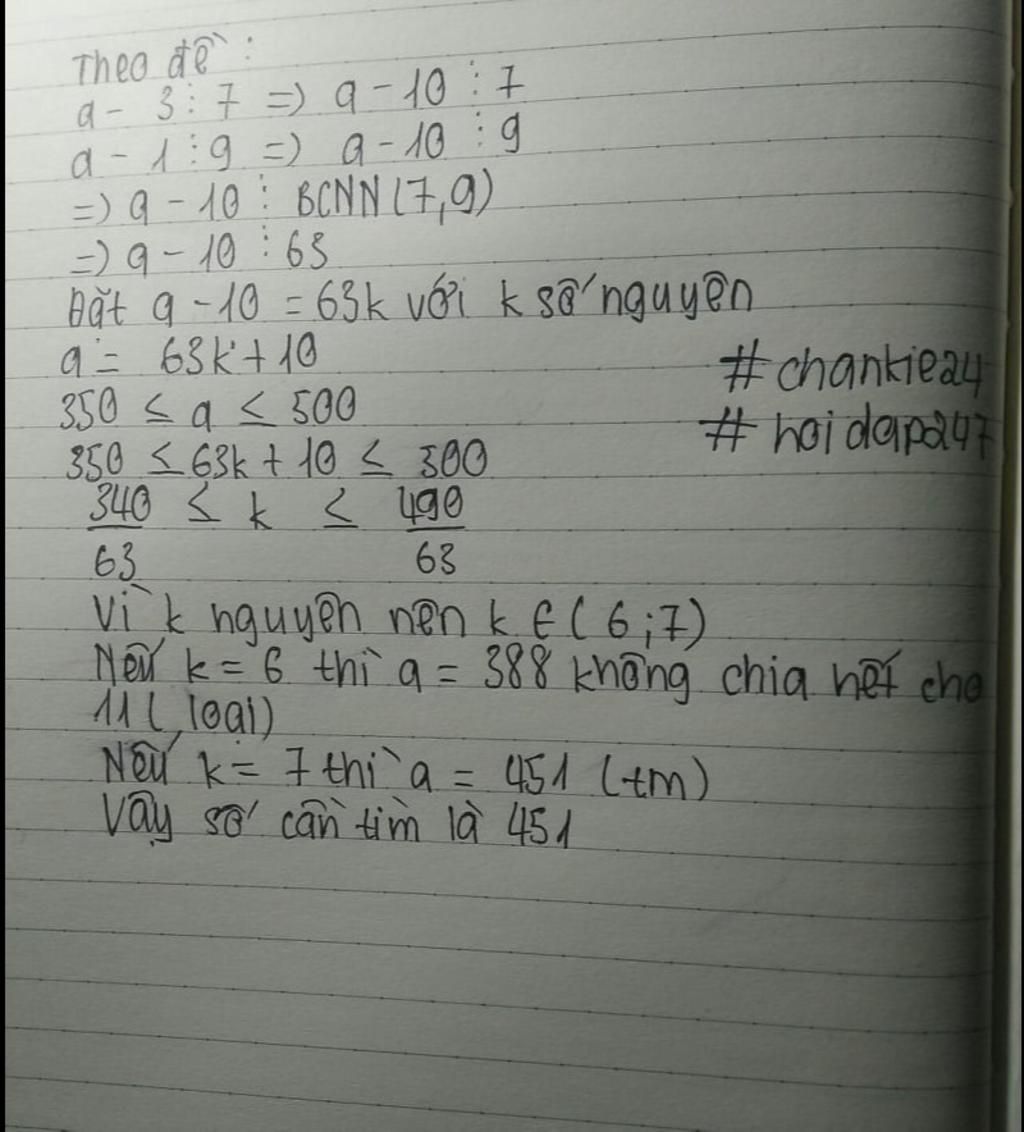 Theo đề:
a - 3 ⋮ 7 => a - 10 ⋮ 7
a - 1 ⋮ 9 => a - 10 ⋮ 9
=> a - 10 ⋮ BCNN(7,9)
=> a - 10 ⋮ 63
Đặt a - 10 = 63k với k số nguyên
a = 63k + 10
#chankie24
350 ≤ a ≤ 500
#hoidap247
350 ≤ 63k + 10 ≤ 500
340/63 ≤ k ≤ 490/63
Vì k nguyên nên k ∈ (6;7)
Nếu k = 6 thì a = 388 không chia hết cho
11 (loại)
Nếu k = 7 thì a = 451 (tm)
Vậy số cần tìm là 451